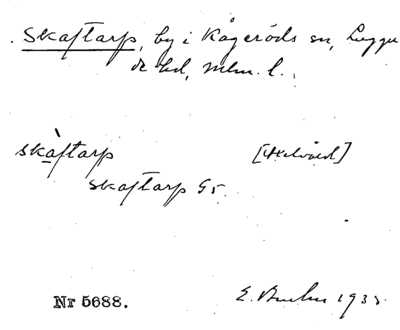 Skaftarp, by i Kågeröds sn, Luggu
de hd, Mlm. l.
skàftarp
skaftarp Gr.
Nr 5688.
E. 1933